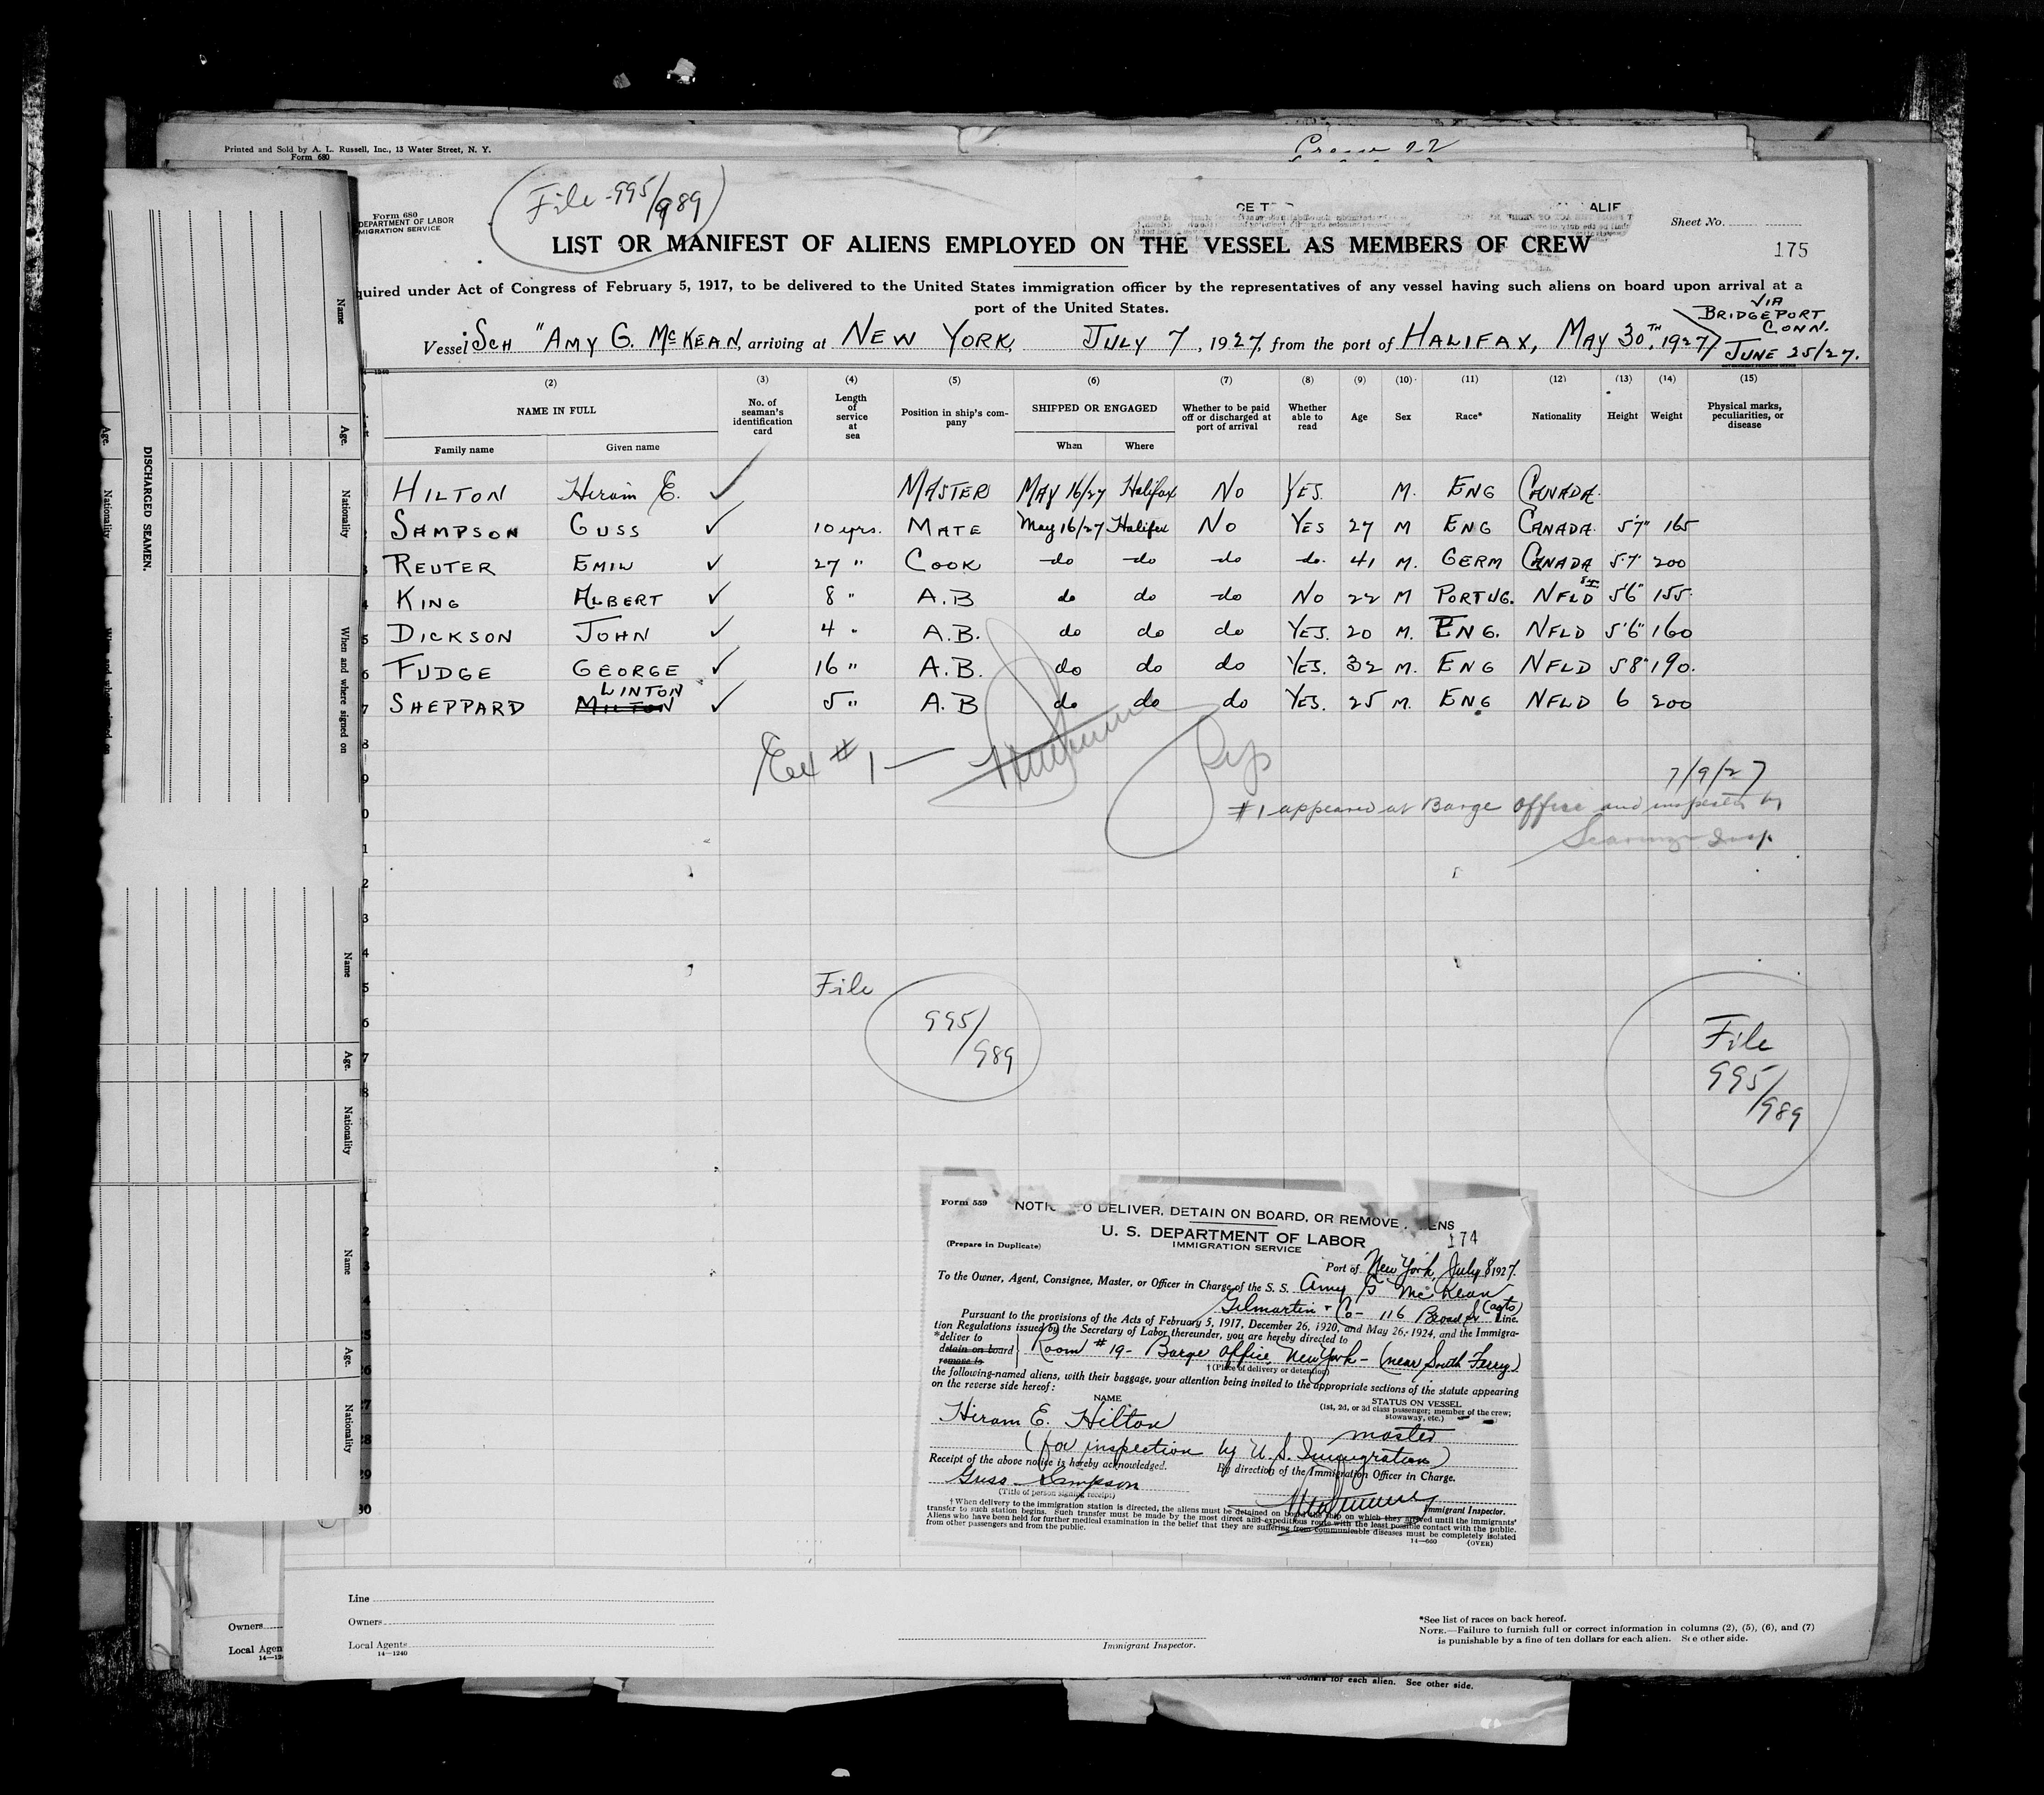 Printed and Sold by A. L. Russell, Inc., 13 Water Street, N. Y.
Form 680
Crew 22
File - 995/989
Form 680
DEPARTMENT OF LABOR
MIGRATION SERVICE
Sheet No.
175
LIST OR MANIFEST OF ALIENS EMPLOYED ON THE VESSEL AS MEMBERS OF CREW
quired under Act of Congress of February 5, 1917, to be delivered to the United States immigration officer by the representatives of any vessel having such aliens on board upon arrival at a
port of the United States.
VIA BRIDGEPORT CONN. JUNE 25/27.
Vessel Sch "AMY G. McKEAN, arriving at NEW YORK, JULY 7, 1927, from the port of HALIFAX, MAY 30TH, 1927
(2) (3) (4) (5) (6) (7) (8) (9) (10) (11) (12) (13) (14) (15)
NAME IN FULL
Family name Given name
No. of seaman's identification card
Length of service at sea
Position in ship's company
SHIPPED OR ENGAGED
When Where
Whether to be paid off or discharged at port of arrival
Whether able to read
Age
Sex
Race*
Nationality
Height
Weight
Physical marks, peculiarities, or disease
HILTON Hiram E. ✓ MASTER MAY 16/27 Halifax NO YES. M. ENG CANADA.
SAMPSON GUSS ✓ 10 yrs. MATE May 16/27 Halifax NO YES 27 M ENG CANADA. 5'7" 165
REUTER EMIL ✓ 27 " COOK do do do do. 41 M. GERM CANADA 5'7" 200
KING ALBERT ✓ 8 " A.B do do do NO 22 M PORTUG. NFLD 5'6" 155
DICKSON JOHN ✓ 4 " A.B. do do do YES. 20 M. ENG. NFLD 5'6" 160
FUDGE GEORGE ✓ 16 " A.B. do do do YES. 32 M. ENG NFLD 5'8" 190.
LINTON
SHEPPARD MILTON ✓ 5 " A.B do do do YES. 25 M. ENG NFLD 6 200
#1 —
7/9/27
#1 appeared at Barge office and inspected by
Insp.
File
995/989
File
995/989
Form 559
O DELIVER, DETAIN ON BOARD, OR REMOVE
174
U. S. DEPARTMENT OF LABOR
IMMIGRATION SERVICE
(Prepare in Duplicate)
Port of New York, July 8 1927.
To the Owner, Agent, Consignee, Master, or Officer in Charge of the S. S. Amy G McKean
Gilmartin + Co - 116 Broad St (agts) Line.
Pursuant to the provisions of the Acts of February 5, 1917, December 26, 1920, and May 26, 1924, and the Immigra-
tion Regulations issued by the Secretary of Labor thereunder, you are hereby directed to
*deliver to
detain on board
remove to
Room #19 - Barge office, New York - (near South Ferry)
†(Place of delivery or detention)
the following-named aliens, with their baggage, your attention being invited to the appropriate sections of the statute appearing
on the reverse side hereof:
NAME
STATUS ON VESSEL
(1st, 2d, or 3d class passenger; member of the crew; stowaway, etc.)
Hiram E. Hilton master
(for inspection by U.S. Immigration)
Receipt of the above notice is hereby acknowledged.
By direction of the Immigration Officer in Charge.
Guss Sampson
(Title of person signing receipt)
Immigrant Inspector.
†When delivery to the immigration station is directed, the aliens must be detained on board the ship on which they arrived until the immigrants'
transfer to such station begins. Such transfer must be made by the most direct and expeditious route with the least possible contact with the public.
Aliens who have been held for further medical examination in the belief that they are suffering from communicable diseases must be completely isolated
from other passengers and from the public.
14—660 (OVER)
Line
Owners
Local Agents
14—1240
Immigrant Inspector.
*See list of races on back hereof.
NOTE.—Failure to furnish full or correct information in columns (2), (5), (6), and (7)
is punishable by a fine of ten dollars for each alien. See other side.
Owners
Local Agen
for each alien. See other side.
DISCHARGED SEAMEN.
Name
Age.
Nationality
When and where signed on
Name
Age.
Nationality
Name
Age.
Nationality